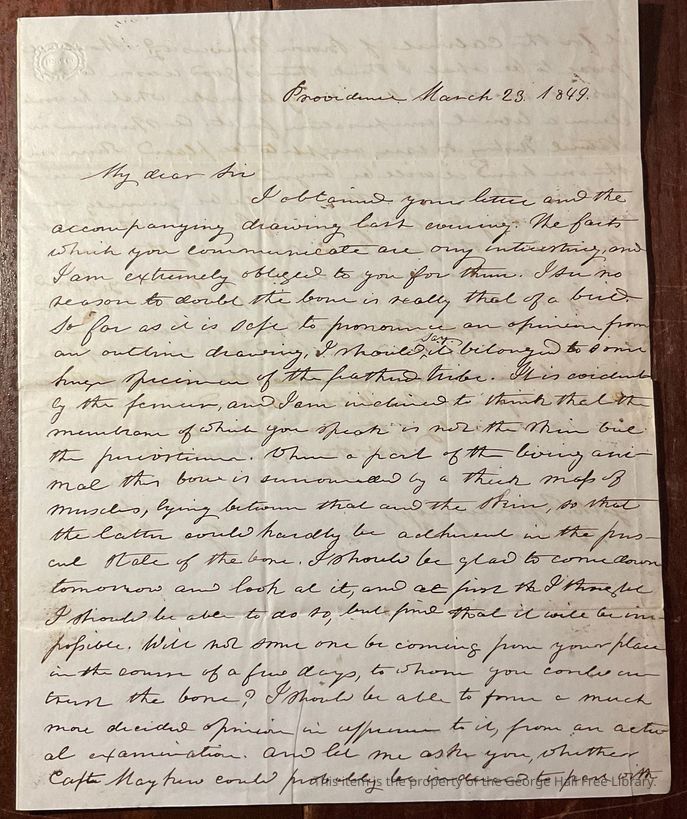 Providence March 23. 1849.
My dear Sir
I obtained your letter and the
accompanying drawing last evening. The facts
which you communicate are very interesting, and
I am extremely obliged to you for them. I see no
reason to doubt the bone is really that of a bird.
So far as it is safe to pronounce an opinion from
an outline drawing, I should say it belonged to some
huge specimen of the feathered tribe. It is evidently
the femur, and I am inclined to think that the
membrane of which you speak is not the skin but
the periosteum. When a part of the living ani-
mal this bone is surrounded by a thick mass of
muscles, lying between that and the skin, so that
the latter could hardly be adherent in the pres-
ent state of the bone. I should be glad to come down
tomorrow and look at it, and at first I thought
I should be able to do so, but find that it will be im-
possible. Will not some one be coming from your place
in the course of a few days, to whom you could en-
trust the bone? I should be able to form a much
more decided opinion in reference to it, from an actu-
al examination. And let me ask you, whether
Capt. Mayhew could probably be induced to part with
This item is the property of the George Hail Free Library.